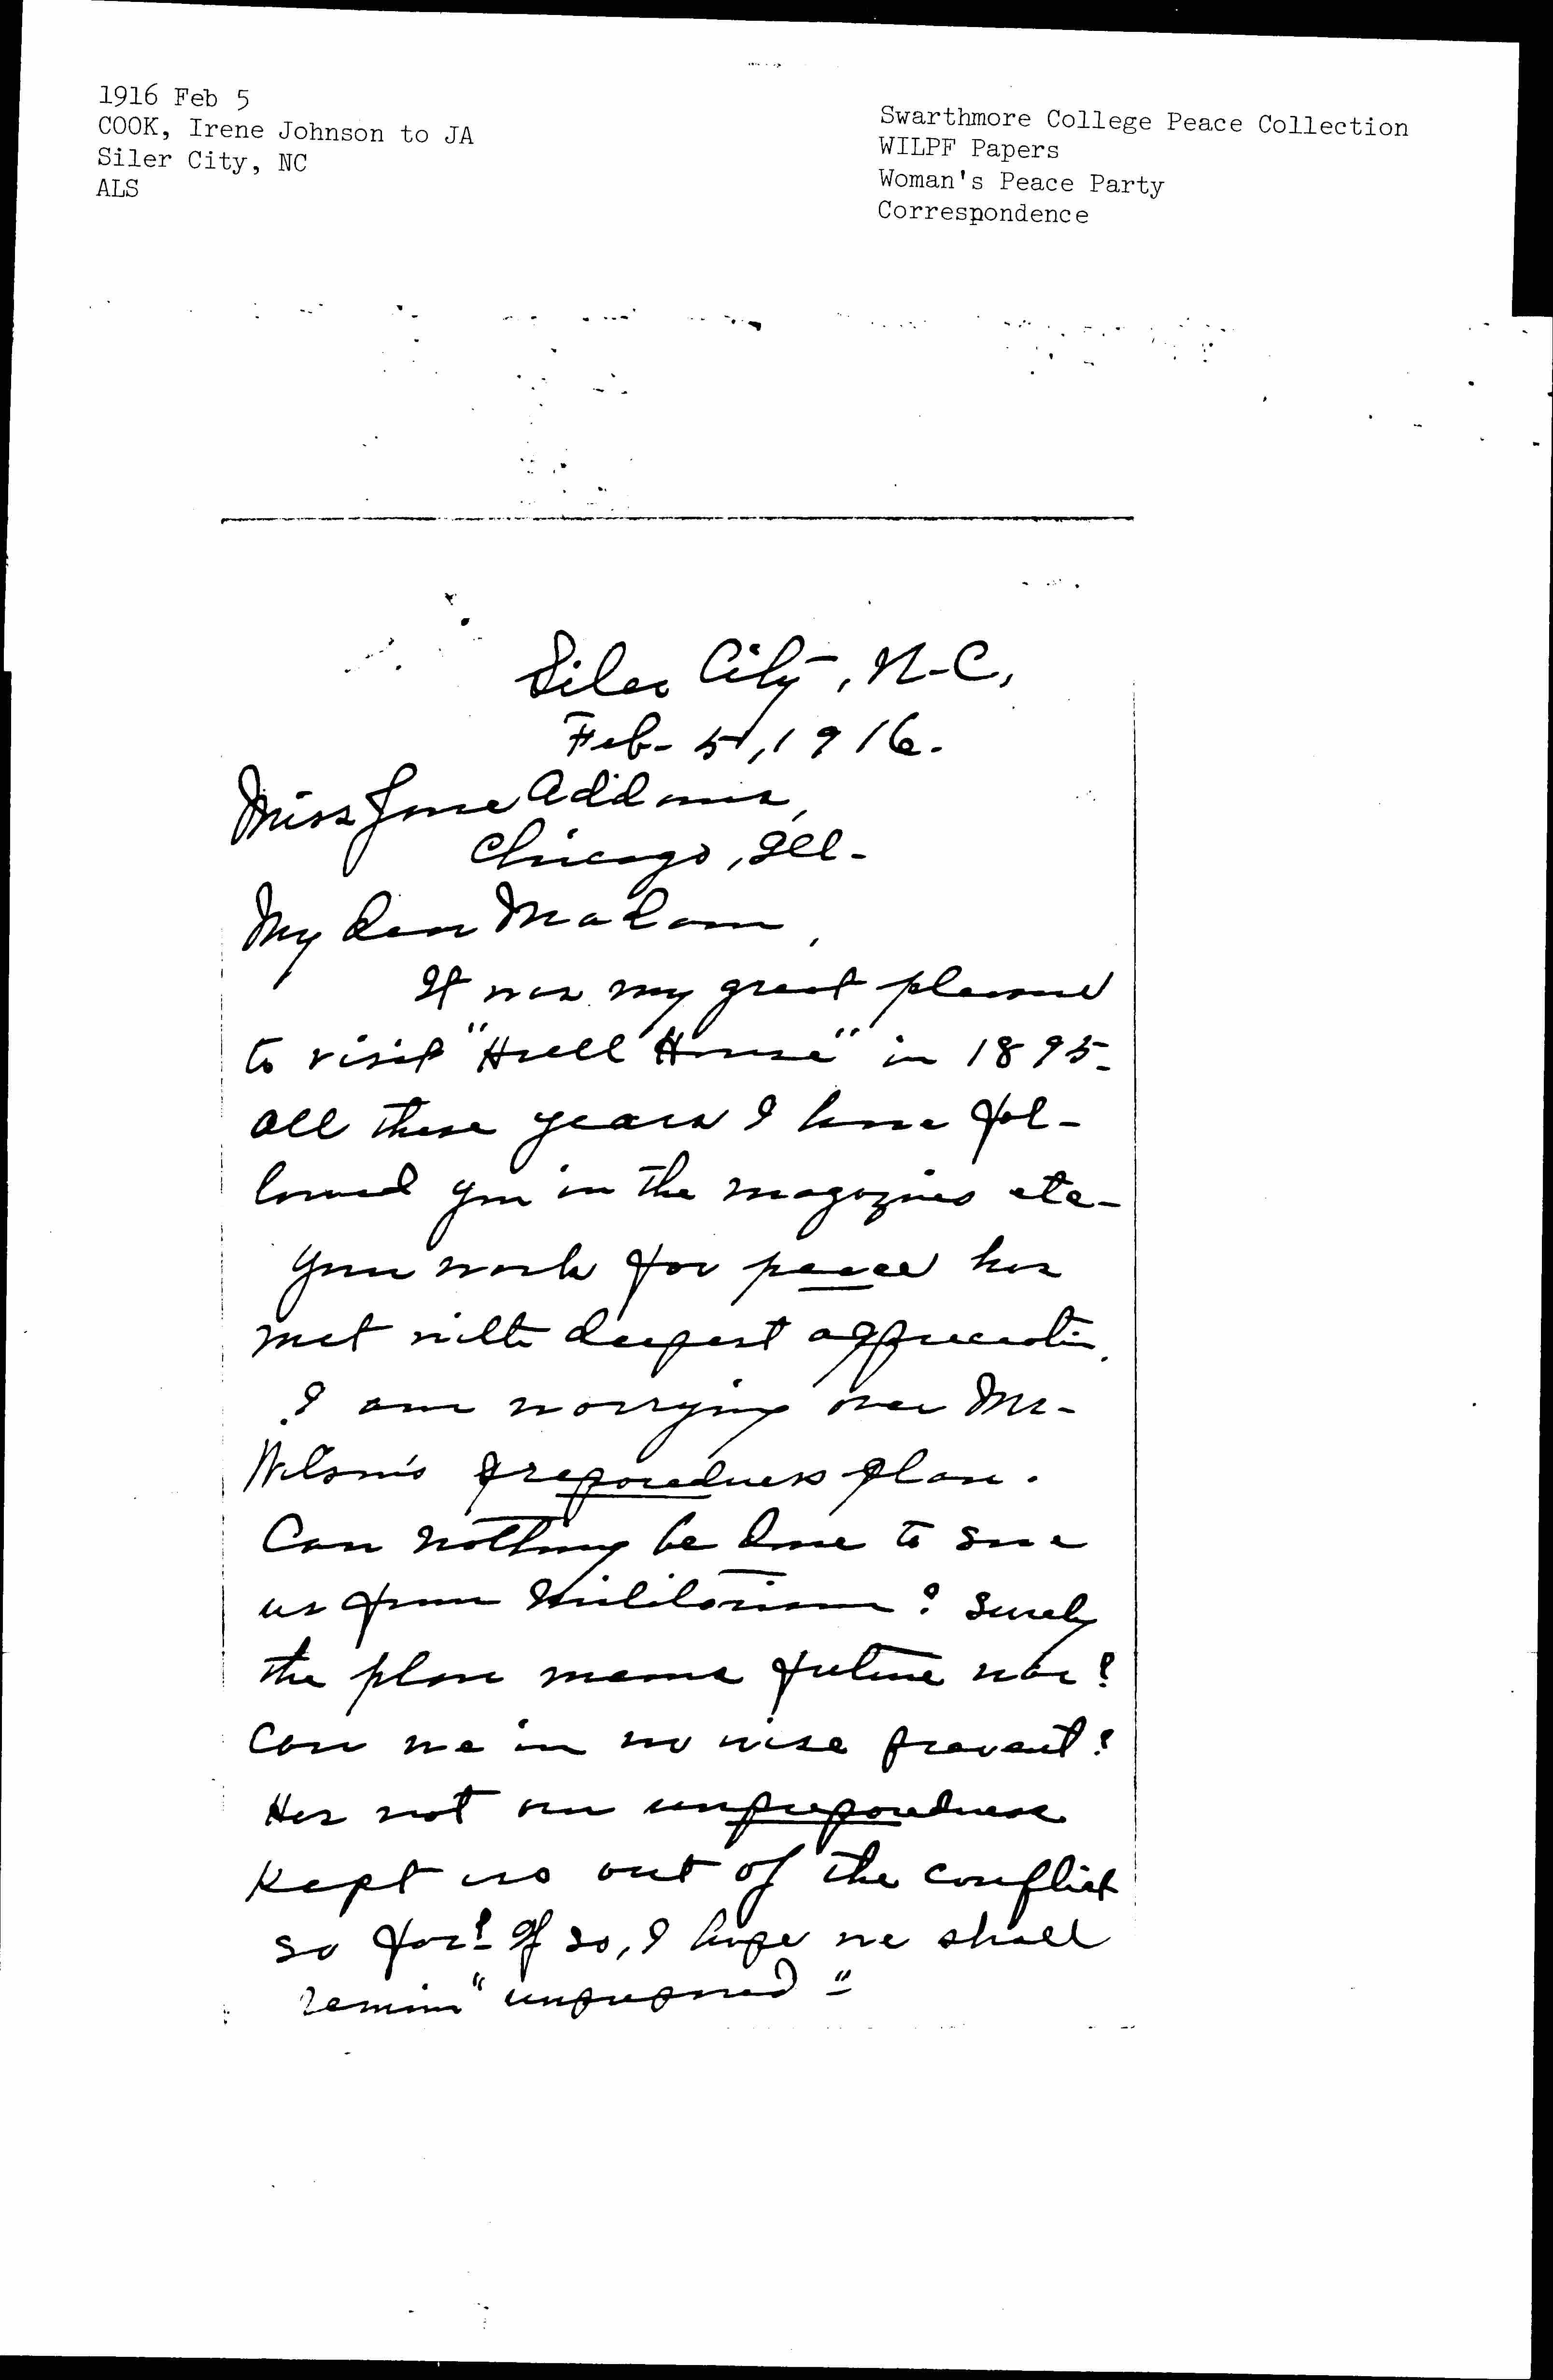 1916 Feb 5
COOK, Irene Johnson to JA
Siler City, NC
ALS
Swarthmore College Peace Collection
WILPF Papers
Woman's Peace Party
Correspondence
Siler City, N-C,
Feb- 5, 1916.
Miss Jane Addams,
Chicago, Ill-
My dear Madam,
It was my great pleasure
to visit "Hull House" in 1895-
All these years I have fol-
lowed you in the magazines etc-
Your work for peace has
met with deepest appreciation.
I am worrying over Mr-
Wilson's preparedness plan.
Can nothing be done to save
us from Militarism? Surely
the plan means future war?
Can we in no wise prevent?
Has not our unpreparedness
kept us out of the conflict
so far? If so, I hope we shall
remain "unprepared"